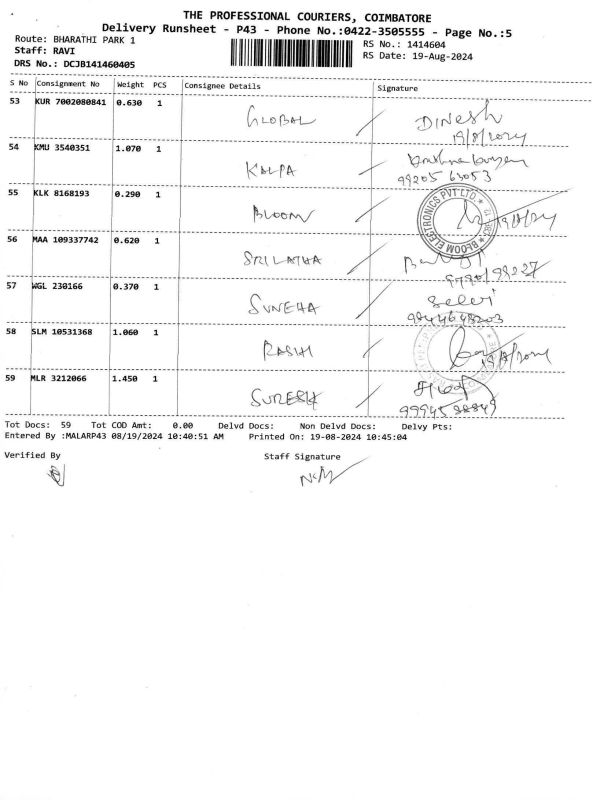 THE PROFESSIONAL COURIERS, COIMBATORE
Delivery Runsheet - P43 - Phone No.:0422-3505555 - Page No.:5
Route: BHARATHI PARK 1
RS No.: 1414604
Staff: RAVI
RS Date: 19-Aug-2024
DRS No.: DCJB141460405
S No Consignment No Weight PCS Consignee Details Signature
53 KUR 7002080841 0.630 1 GLOBAL DINESH
19/8/2024
54 KMU 3540351 1.070 1 KALPA
99205 63053
55 KLK 8168193 0.290 1 BLOOM 19/8/24
BLOOM ELECTRONICS PVT LTD.
56 MAA 109337742 0.620 1 SRILATHA
57 WGL 230166 0.370 1 SUNEHA Selvi
58 SLM 10531368 1.060 1 RASHI 19/8/2024
59 MLR 3212066 1.450 1 SURESH
Tot Docs: 59 Tot COD Amt: 0.00 Delvd Docs: Non Delvd Docs: Delvy Pts:
Entered By :MALARP43 08/19/2024 10:40:51 AM Printed On: 19-08-2024 10:45:04
Verified By Staff Signature